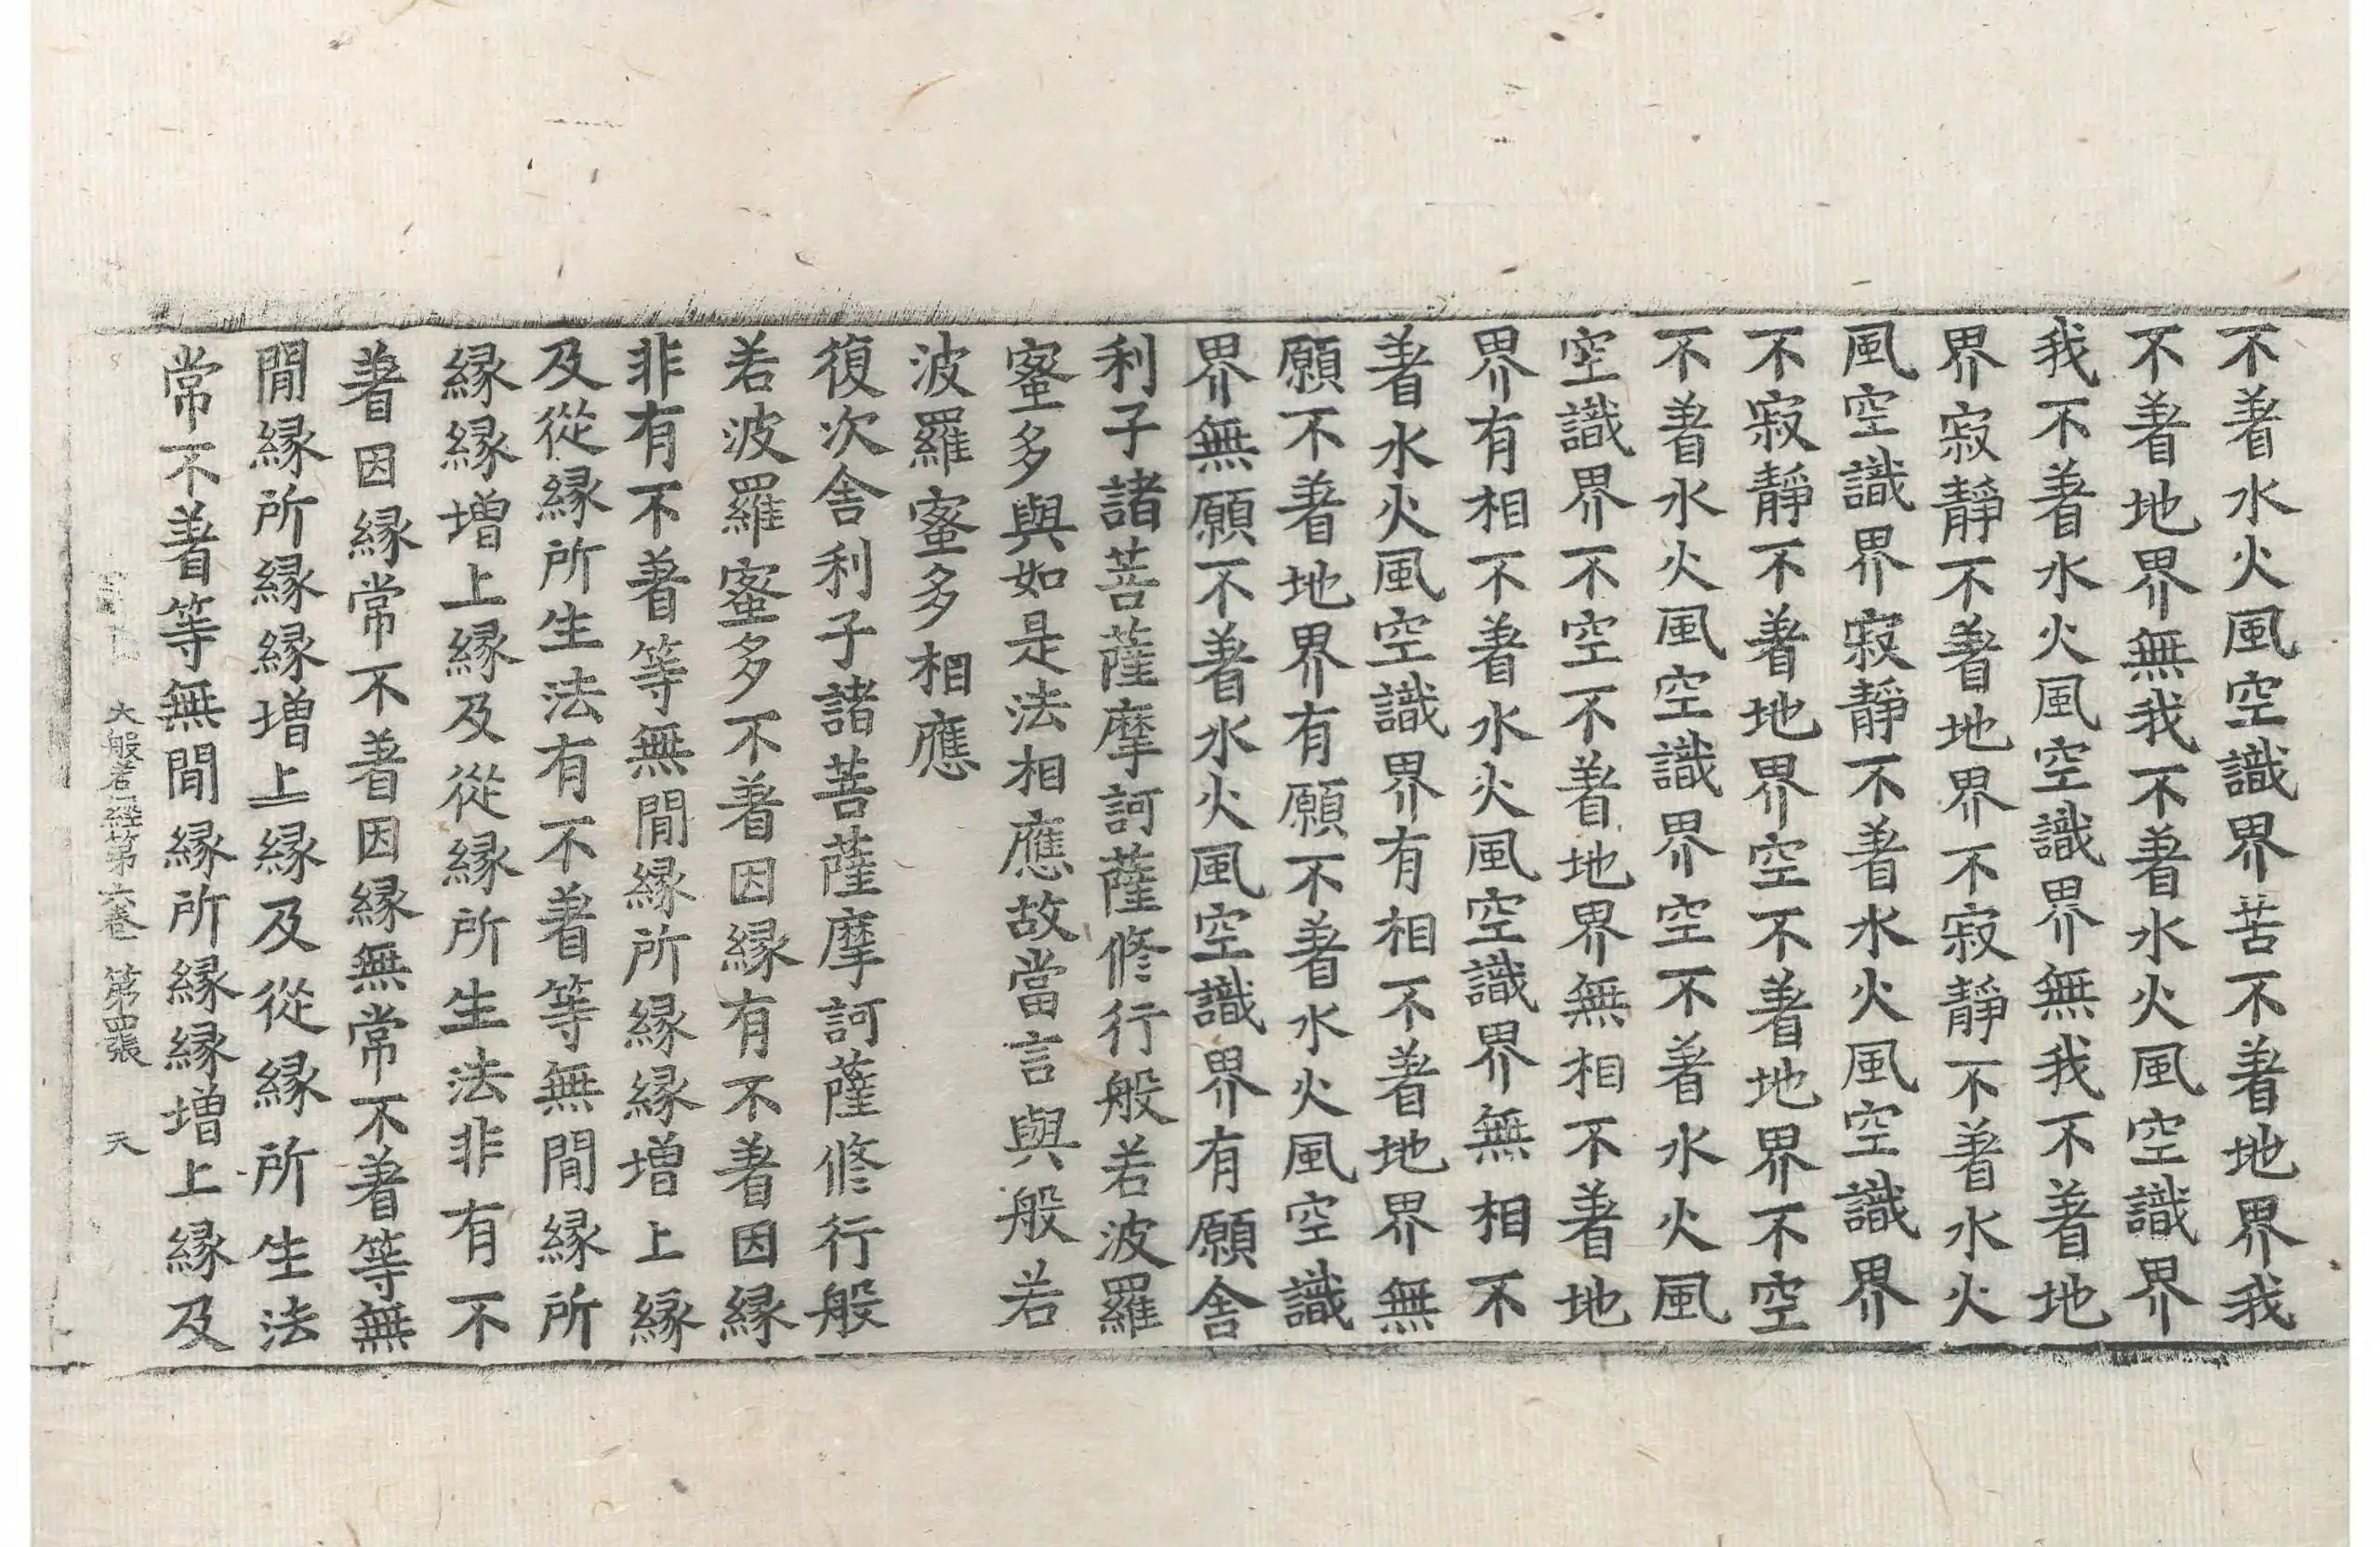 不著水火風空識界苦不著地界我
不著地界無我不著水火風空識界
我不著水火風空識界無我不著地
界寂靜不著地界不寂靜不著水火
風空識界寂靜不著水火風空識界
不寂靜不著地界空不著地界不空
不著水火風空識界空不著水火風
空識界不空不著地界無相不著地
界有相不著水火風空識界無相不
著水火風空識界有相不著地界無
願不著地界有願不著水火風空識
界無願不著水火風空識界有願舍
利子諸菩薩摩訶薩修行般若波羅
蜜多與如是法相應故當言與般若
波羅蜜多相應
復次舍利子諸菩薩摩訶薩修行般
若波羅蜜多不著因緣有不著因緣
非有不著等無間緣所緣緣增上緣
及從緣所生法有不著等無間緣所
緣緣增上緣及從緣所生法非有不
著因緣常不著因緣無常不著等無
間緣所緣緣增上緣及從緣所生法
常不著等無間緣所緣緣增上緣及
大般若經第六卷 第四張 天